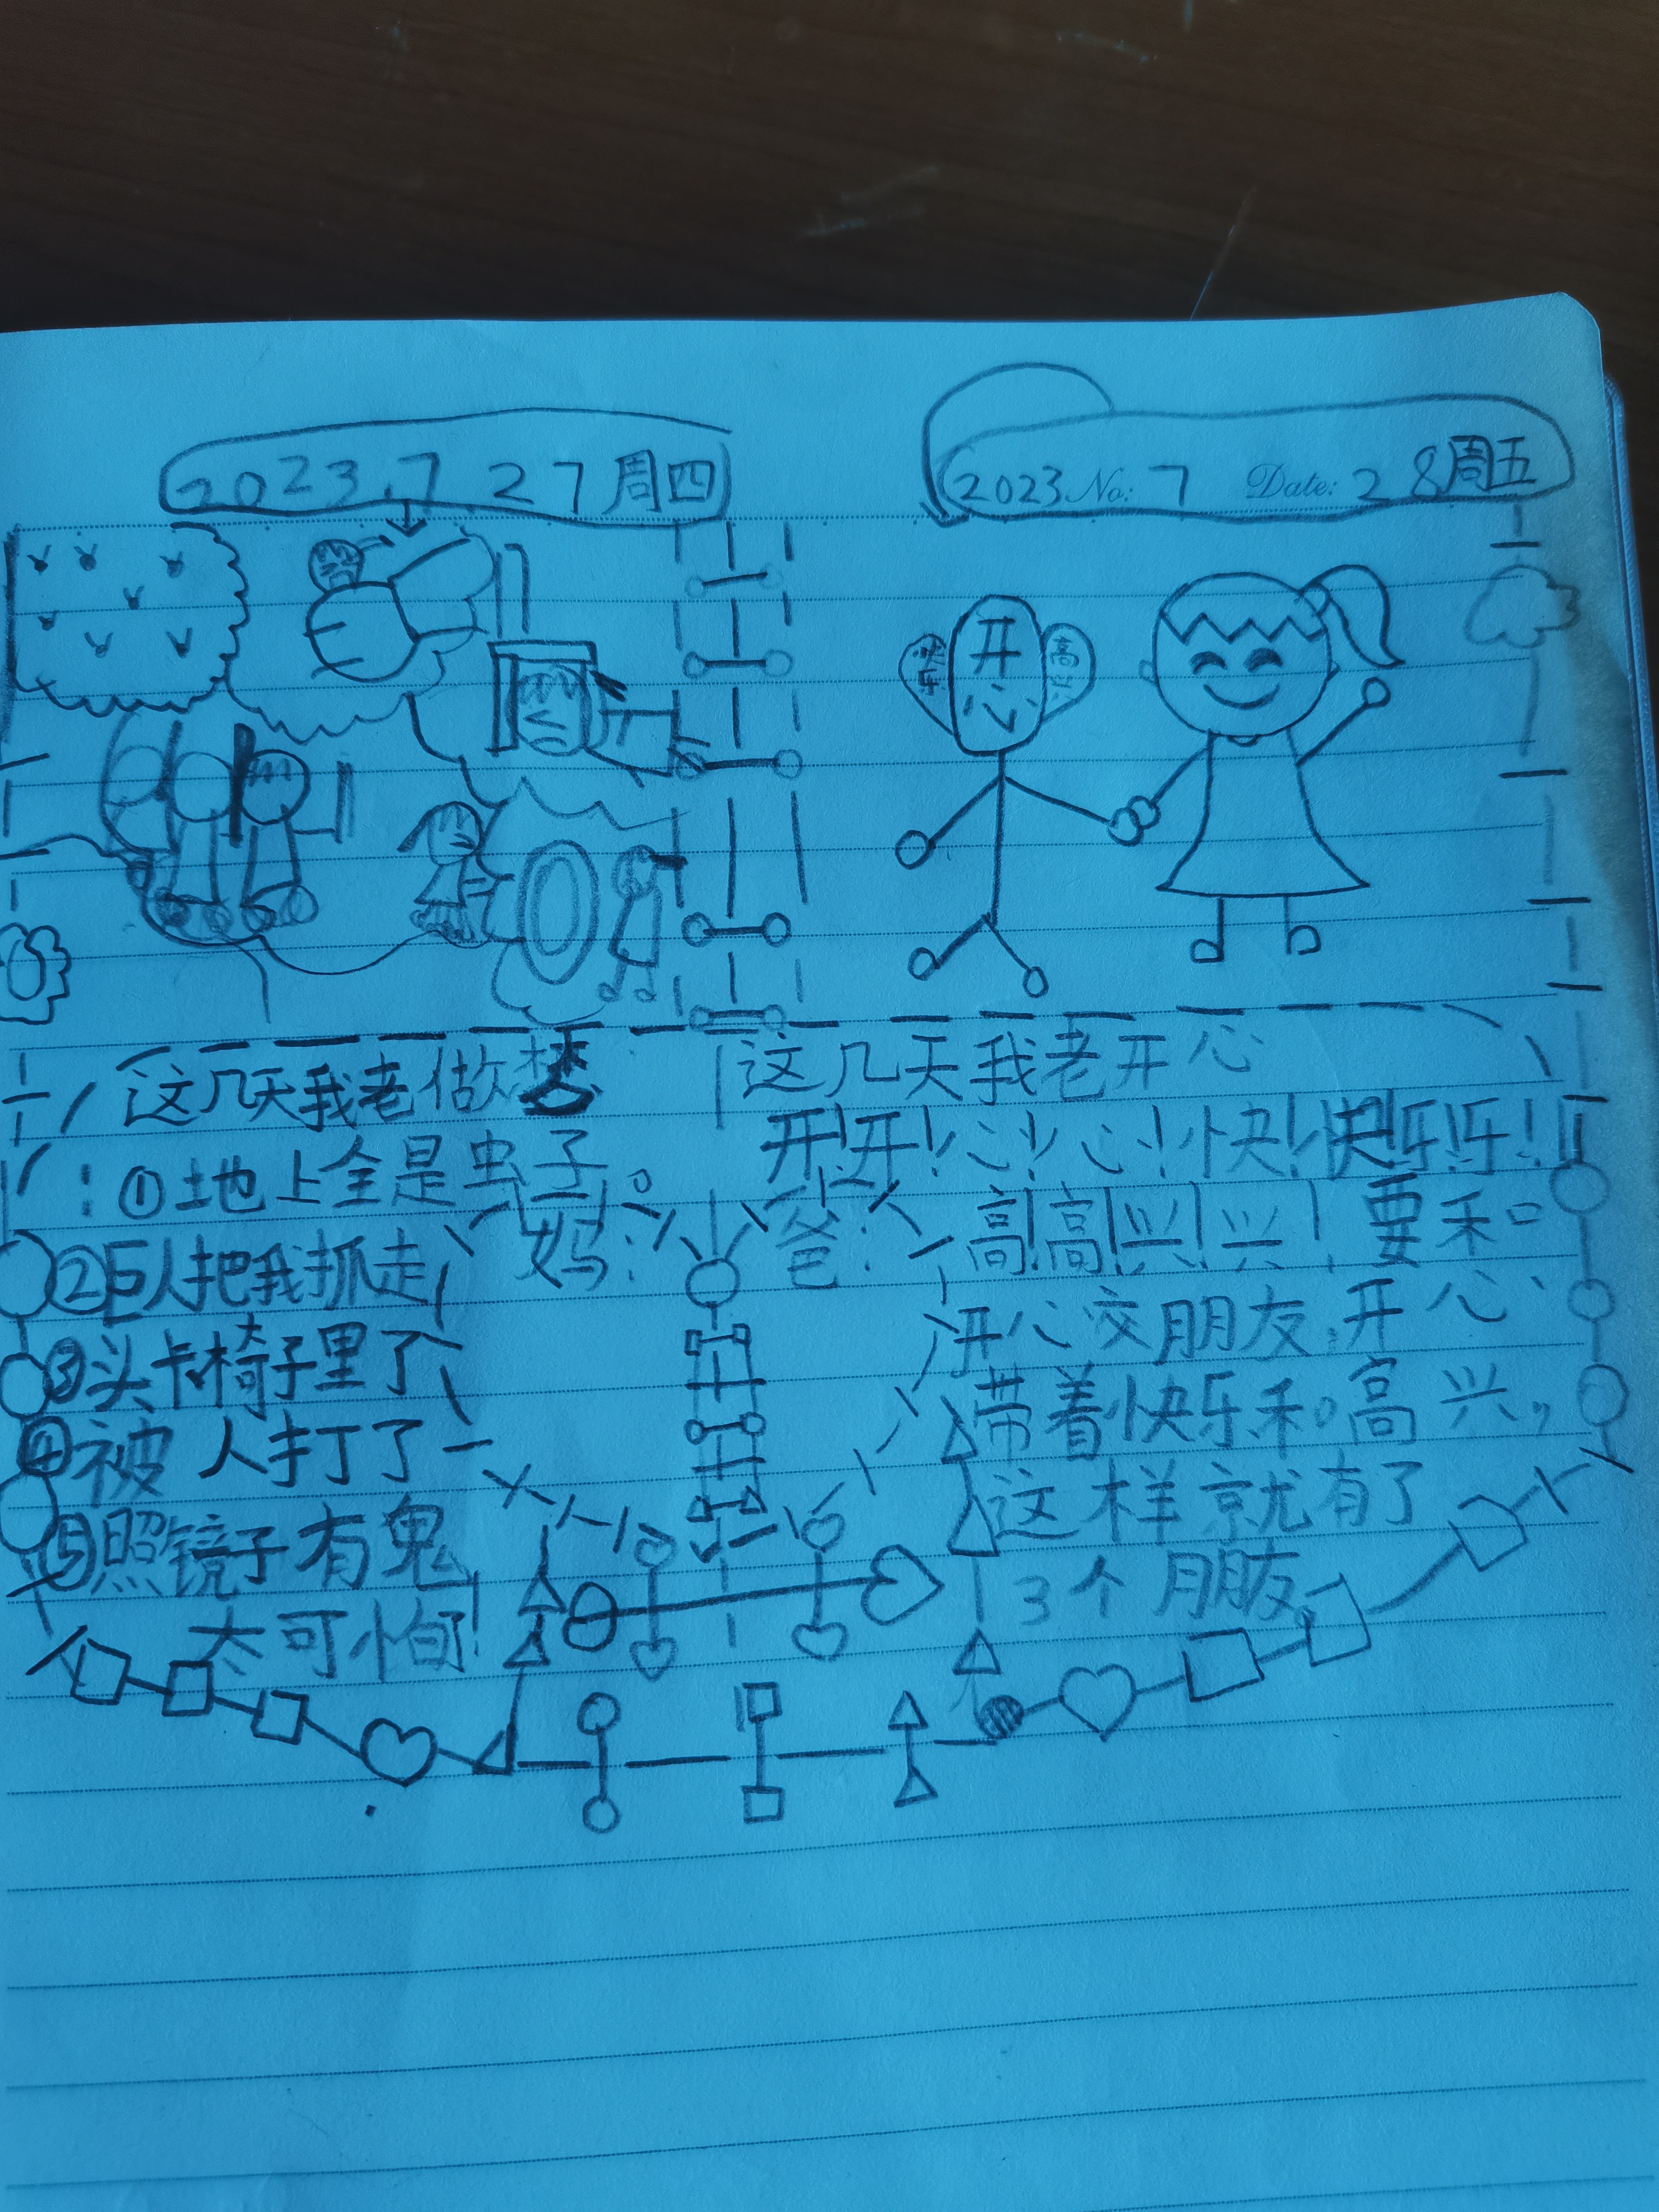 2023.7 27周四
这几天我老做梦
：①地上全是虫子。
②巨人把我抓走
③头卡椅子里了
④被人打了
⑤照镜子有鬼
太可怕!
妈：
爸：
2023 No: 7 Date: 28周五
开心
快乐
高兴
这几天我老开心
开!开!心!心!快!快!乐!乐!
高!高!兴!兴!要和
开心交朋友,开心
带着快乐和高兴,
这样就有了
3个朋友,